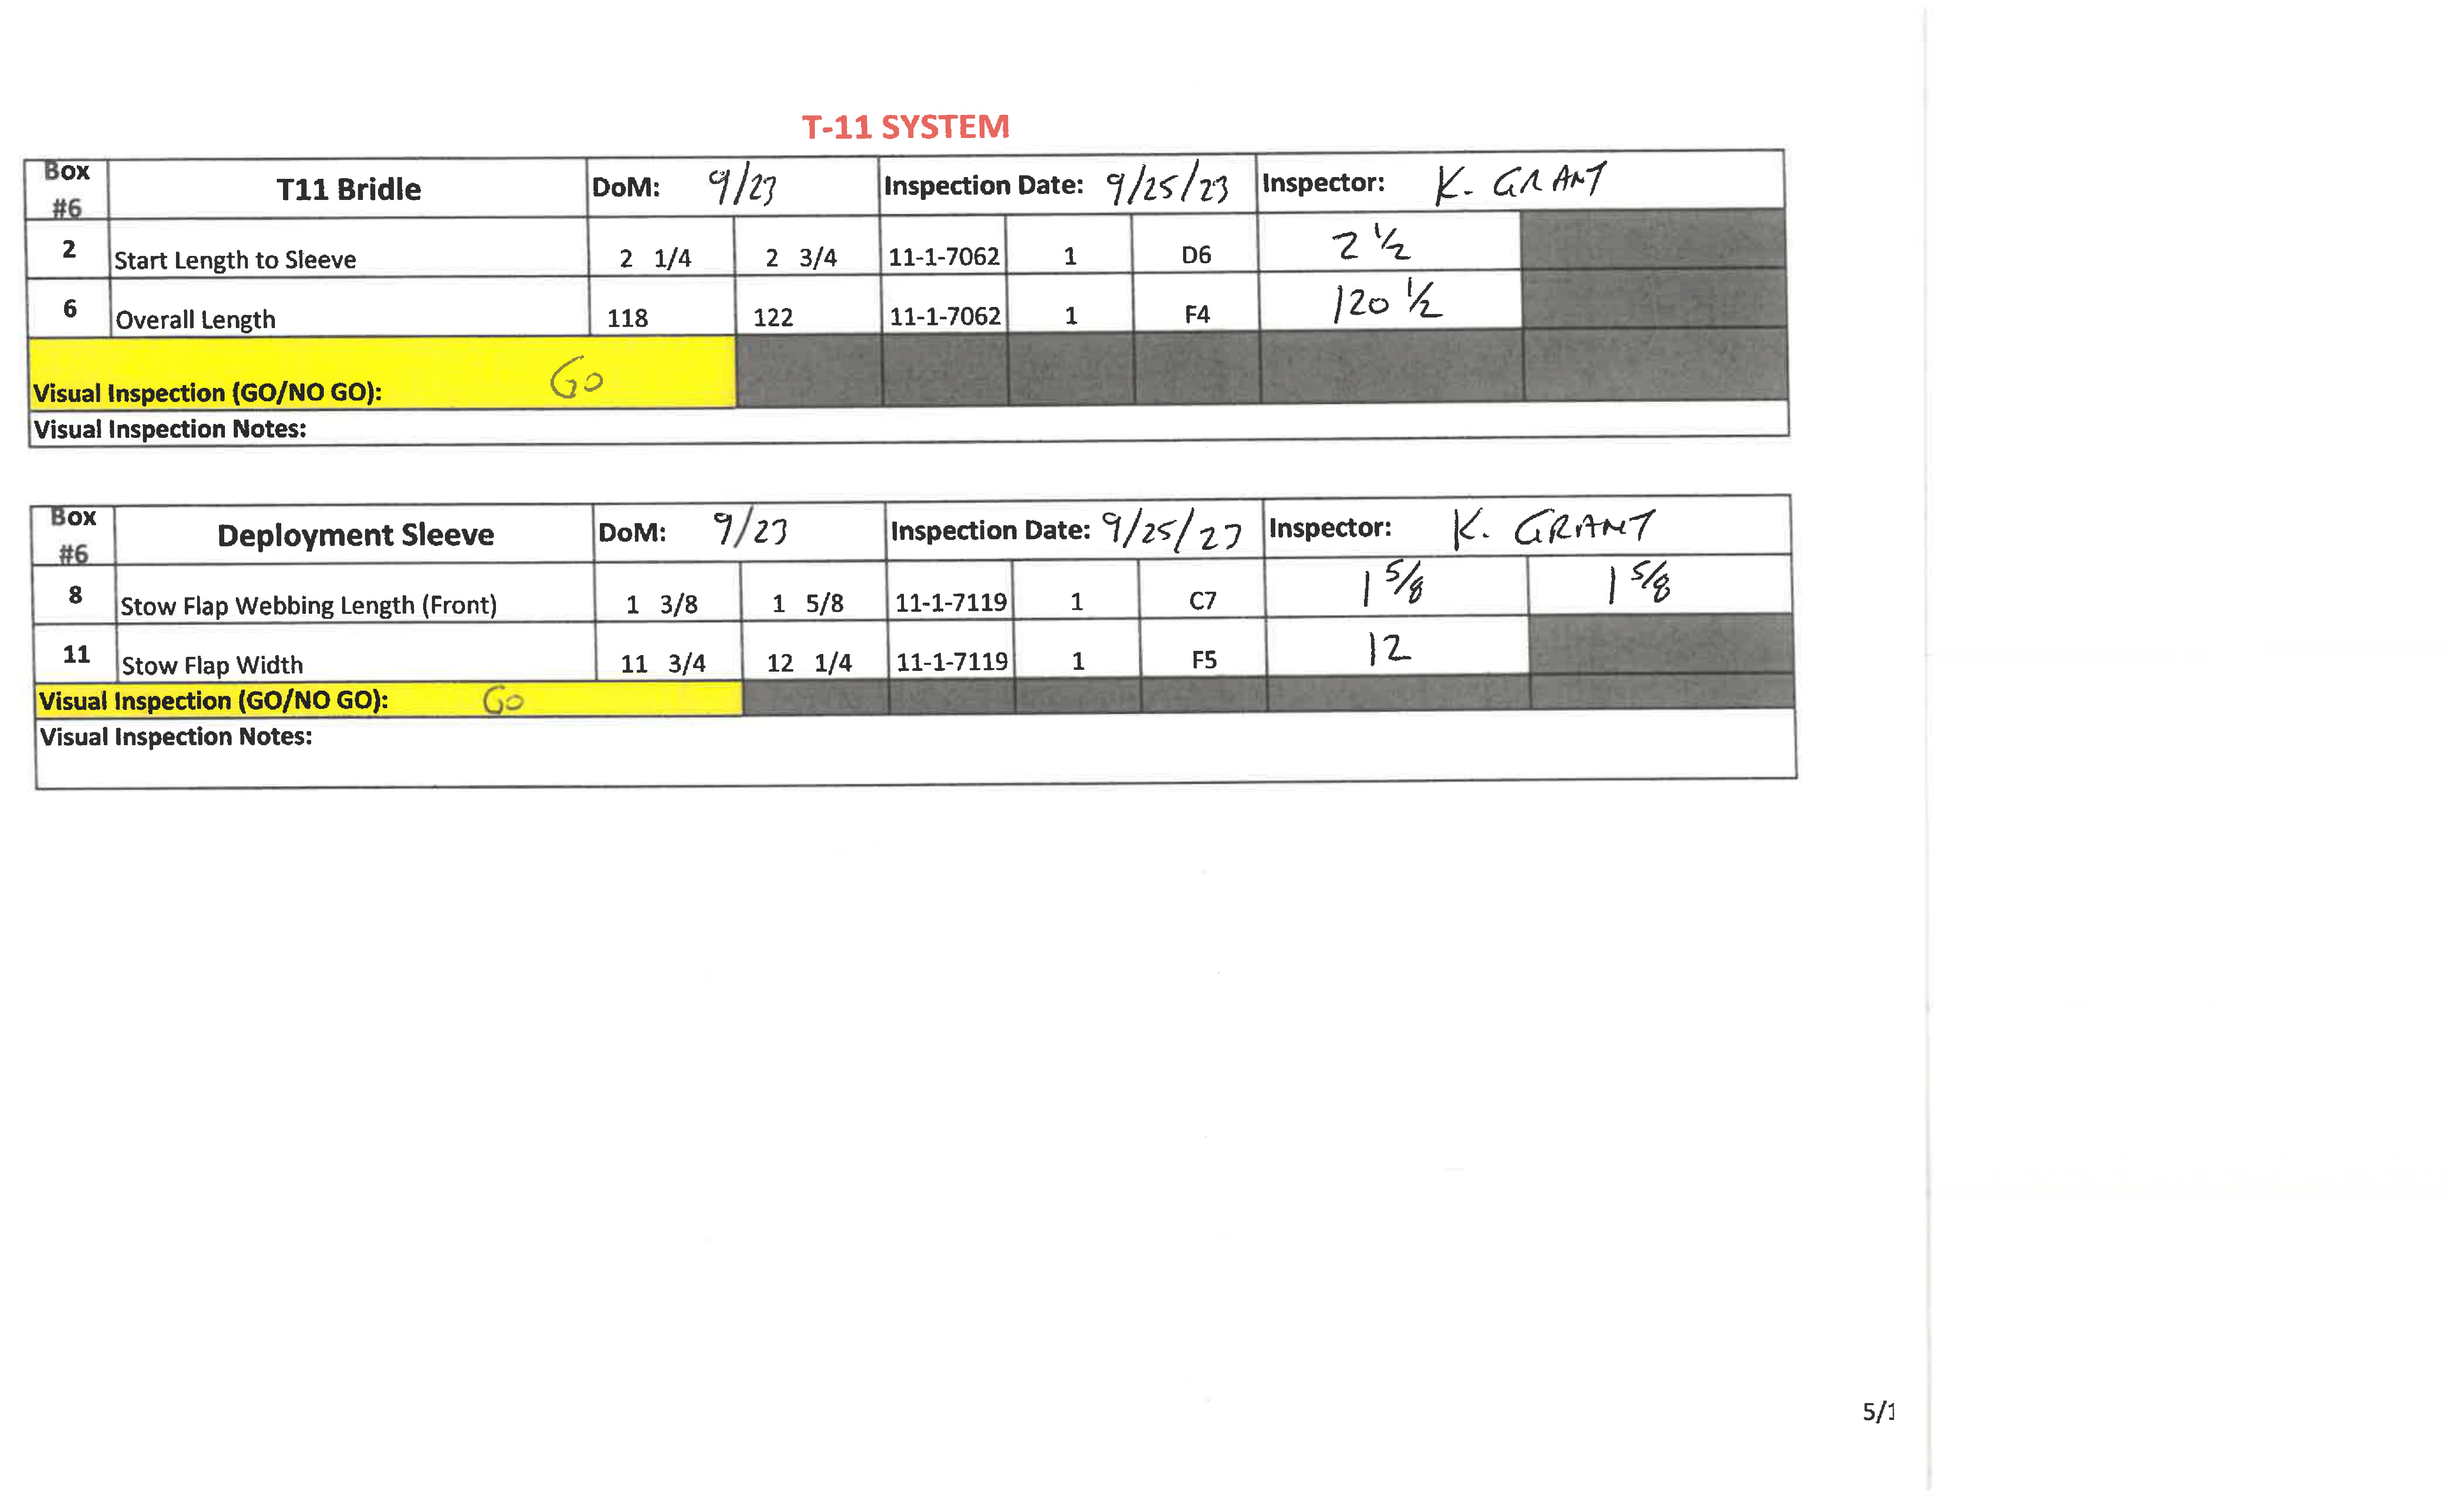 T-11 SYSTEM
Box #6 T11 Bridle DoM: 9/23 Inspection Date: 9/25/23 Inspector: K. GRANT
2 Start Length to Sleeve 2 1/4 2 3/4 11-1-7062 1 D6 2 1/2
6 Overall Length 118 122 11-1-7062 1 F4 120 1/2
Visual Inspection (GO/NO GO): GO
Visual Inspection Notes:
Box #6 Deployment Sleeve DoM: 9/23 Inspection Date: 9/25/23 Inspector: K. GRANT
8 Stow Flap Webbing Length (Front) 1 3/8 1 5/8 11-1-7119 1 C7 1 5/8 1 5/8
11 Stow Flap Width 11 3/4 12 1/4 11-1-7119 1 F5 12
Visual Inspection (GO/NO GO): GO
Visual Inspection Notes:
5/1